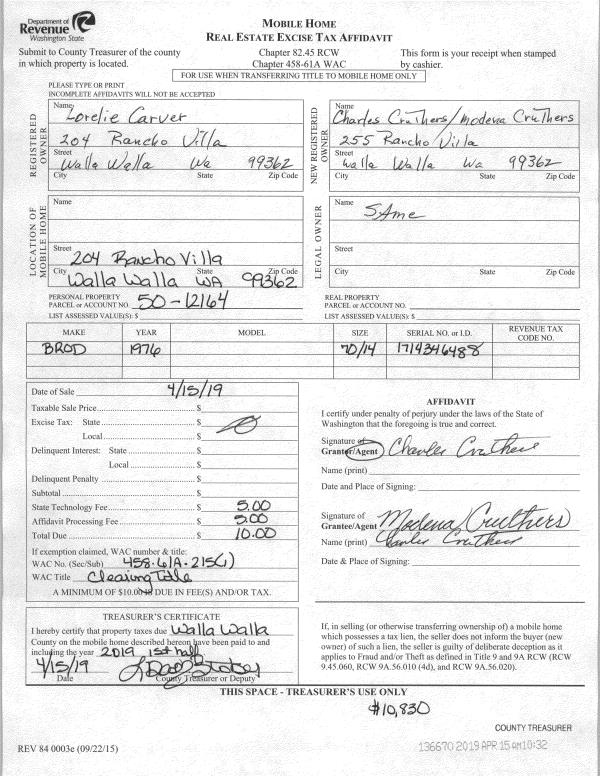 Department of
Revenue
Washington State
MOBILE HOME
REAL ESTATE EXCISE TAX AFFIDAVIT
Submit to County Treasurer of the county
in which property is located.
Chapter 82.45 RCW
Chapter 458-61A WAC
This form is your receipt when stamped
by cashier.
FOR USE WHEN TRANSFERRING TITLE TO MOBILE HOME ONLY
PLEASE TYPE OR PRINT
INCOMPLETE AFFIDAVITS WILL NOT BE ACCEPTED
REGISTERED OWNER
Name Lorelie Carver
204 Rancho Villa
Street
Walla Walla Wa 99362
City State Zip Code
NEW REGISTERED OWNER
Name
Charles Cruthers/Modena Cruthers
255 Rancho Villa
Street
Walla Walla Wa 99362
City State Zip Code
LOCATION OF MOBILE HOME
Name
Street 204 Rancho Villa
City State Zip Code
Walla Walla WA 99362
LEGAL OWNER
Name SAme
Street
City State Zip Code
PERSONAL PROPERTY
PARCEL or ACCOUNT NO. 50-12164
LIST ASSESSED VALUE(S): $
REAL PROPERTY
PARCEL or ACCOUNT NO.
LIST ASSESSED VALUE(S): $
MAKE YEAR MODEL SIZE SERIAL NO. or I.D. REVENUE TAX CODE NO.
BROD 1976 70/14 1714346488
Date of Sale 4/15/19
Taxable Sale Price $
Excise Tax: State $
Local $
Delinquent Interest: State $
Local $
Delinquent Penalty $
Subtotal $
State Technology Fee $ 5.00
Affidavit Processing Fee $ 5.00
Total Due $ 10.00
If exemption claimed, WAC number & title:
WAC No. (Sec/Sub) 458.61A.215()
WAC Title Clearing Title
A MINIMUM OF $10.00 IS DUE IN FEE(S) AND/OR TAX.
AFFIDAVIT
I certify under penalty of perjury under the laws of the State of
Washington that the foregoing is true and correct.
Signature of
Grantor/Agent Charles Cruthers
Name (print)
Date and Place of Signing:
Signature of
Grantee/Agent Modena Cruthers
Name (print) Charles Cruthers
Date & Place of Signing:
TREASURER'S CERTIFICATE
I hereby certify that property taxes due Walla Walla
County on the mobile home described hereon have been paid to and
including the year 2019 1st half
4/15/19
Date County Treasurer or Deputy
If, in selling (or otherwise transferring ownership) of a mobile home
which possesses a tax lien, the seller does not inform the buyer (new
owner) of such a lien, the seller is guilty of deliberate deception as it
applies to Fraud and/or Theft as defined in Title 9 and 9A RCW (RCW
9.45.060, RCW 9A.56.010 (4d), and RCW 9A.56.020).
THIS SPACE - TREASURER'S USE ONLY
$10,830
COUNTY TREASURER
136670 2019 APR 15 AM 10:32
REV 84 0003e (09/22/15)